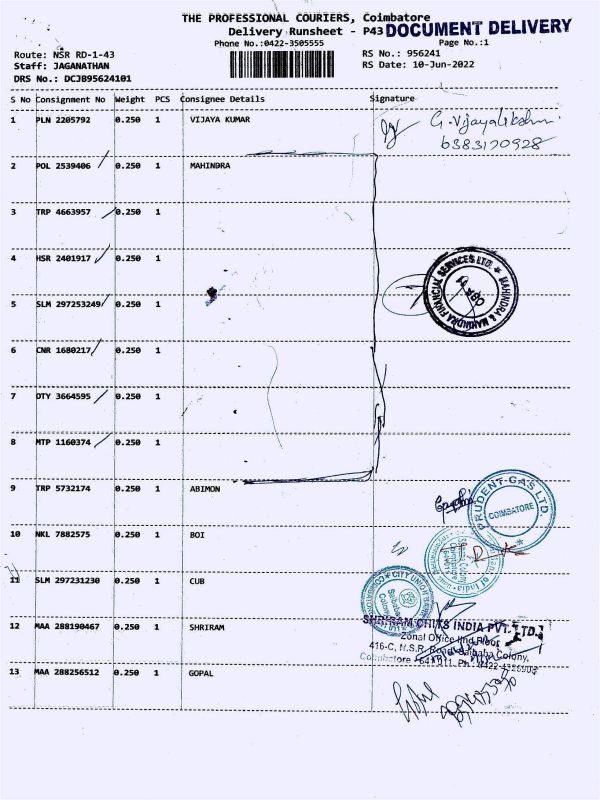 THE PROFESSIONAL COURIERS, Coimbatore
Delivery Runsheet - P43 DOCUMENT DELIVERY
Phone No.:0422-3505555 Page No.:1
Route: NSR RD-1-43 RS No.: 956241
Staff: JAGANATHAN RS Date: 10-Jun-2022
DRS No.: DCJB95624101
S No Consignment No Weight PCS Consignee Details Signature
1 PLN 2205792 0.250 1 VIJAYA KUMAR G. Vijayalakshmi
6383170928
2 POL 2539406 0.250 1 MAHINDRA
3 TRP 4663957 0.250 1
4 HSR 2401917 0.250 1
MAHINDRA & MAHINDRA FINANCIAL SERVICES LTD.
5 SLM 297253249 0.250 1
6 CNR 1680217 0.250 1
7 OTY 3664595 0.250 1
8 MTP 1160374 0.250 1
9 TRP 5732174 0.250 1 ABIMON
PRUDENT-GAS LTD.
COIMBATORE
10 NKL 7882575 0.250 1 BOI
11 SLM 297231230 0.250 1 CUB
CITY UNION
12 MAA 288190467 0.250 1 SHRIRAM
SHRIRAM CHITS INDIA PVT. LTD.
Zonal Office IInd Floor
416-C, N.S.R. Road, Saibaba Colony,
Coimbatore - 641 011. Ph: 0422
13 MAA 288256512 0.250 1 GOPAL